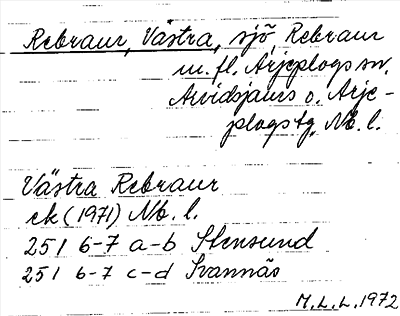 Rebraur, Västra, sjö, Rebraur
m. fl. Arjeplogs sn,
Arvidsjaurs o. Arje-
plogs tg, Nb. l.
Västra Rebraur
ek (1971) Nb. l.
25 I 6-7 a-b Stensund
25 I 6-7 c-d Svannäs
M. L. L. 1972